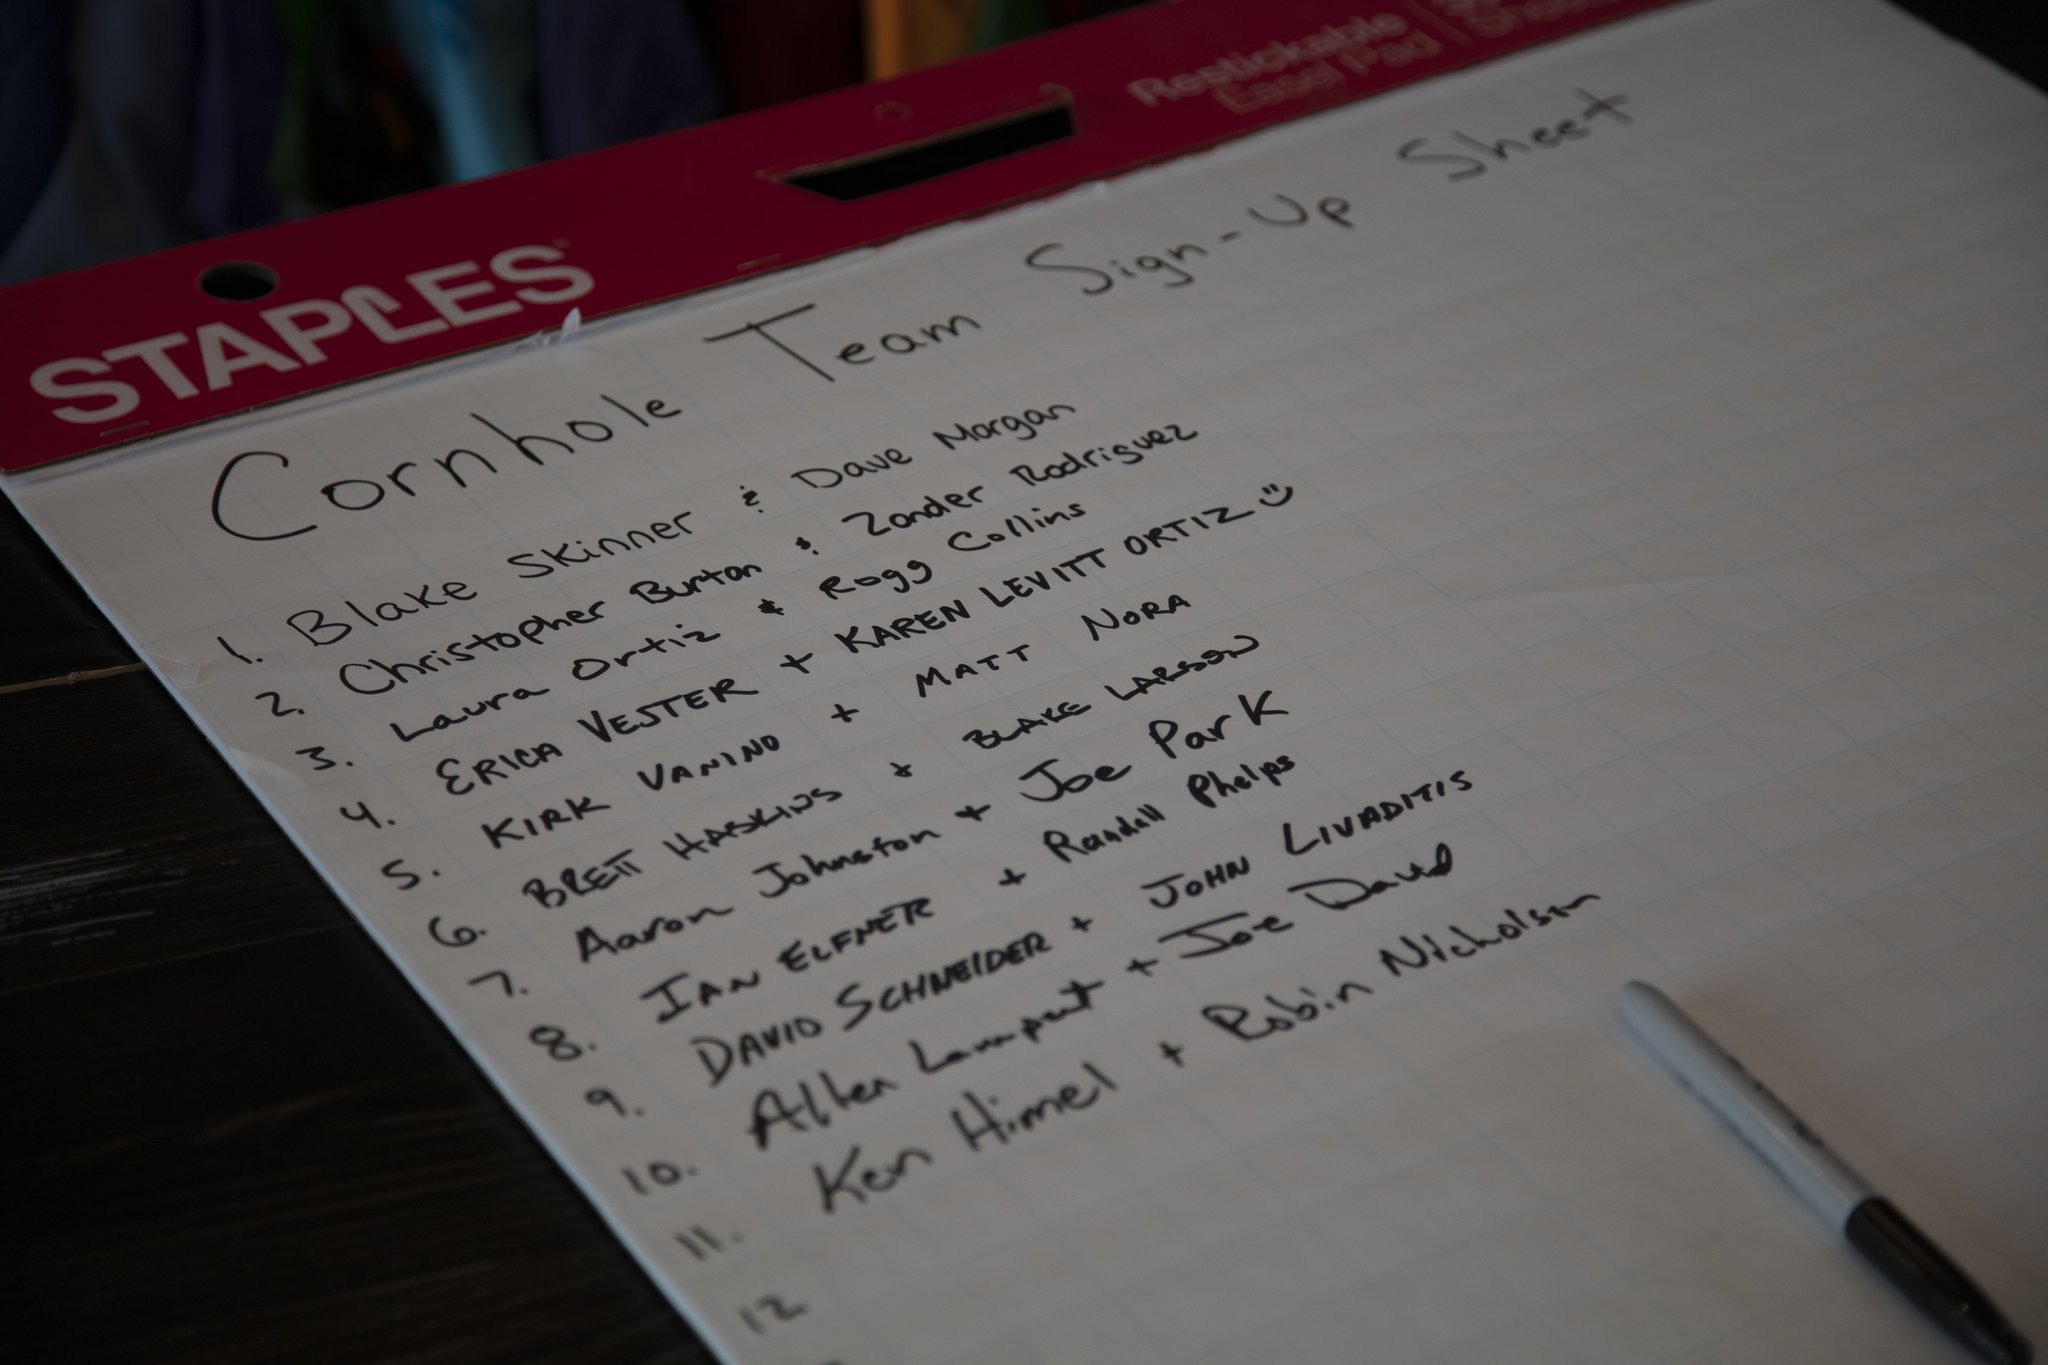 STAPLES
Restickable
Easel Pad
Cornhole Team Sign-Up Sheet
1. Blake Skinner & Dave Morgan
2. Christopher Burton & Zander Rodriguez
3. Laura Ortiz & Rogg Collins
4. ERICA VESTER + KAREN LEVITT ORTIZ
5. KIRK VANINO + MATT NORA
6. BRETT HASKINS & BLAKE LARSON
7. Aaron Johnston + Joe Park
8. IAN ELFNER + Randall Phelps
9. DAVID SCHNEIDER + JOHN LIVADITIS
10. Allen Lampert + Joe David
11. Ken Himel + Robin Nicholson
12